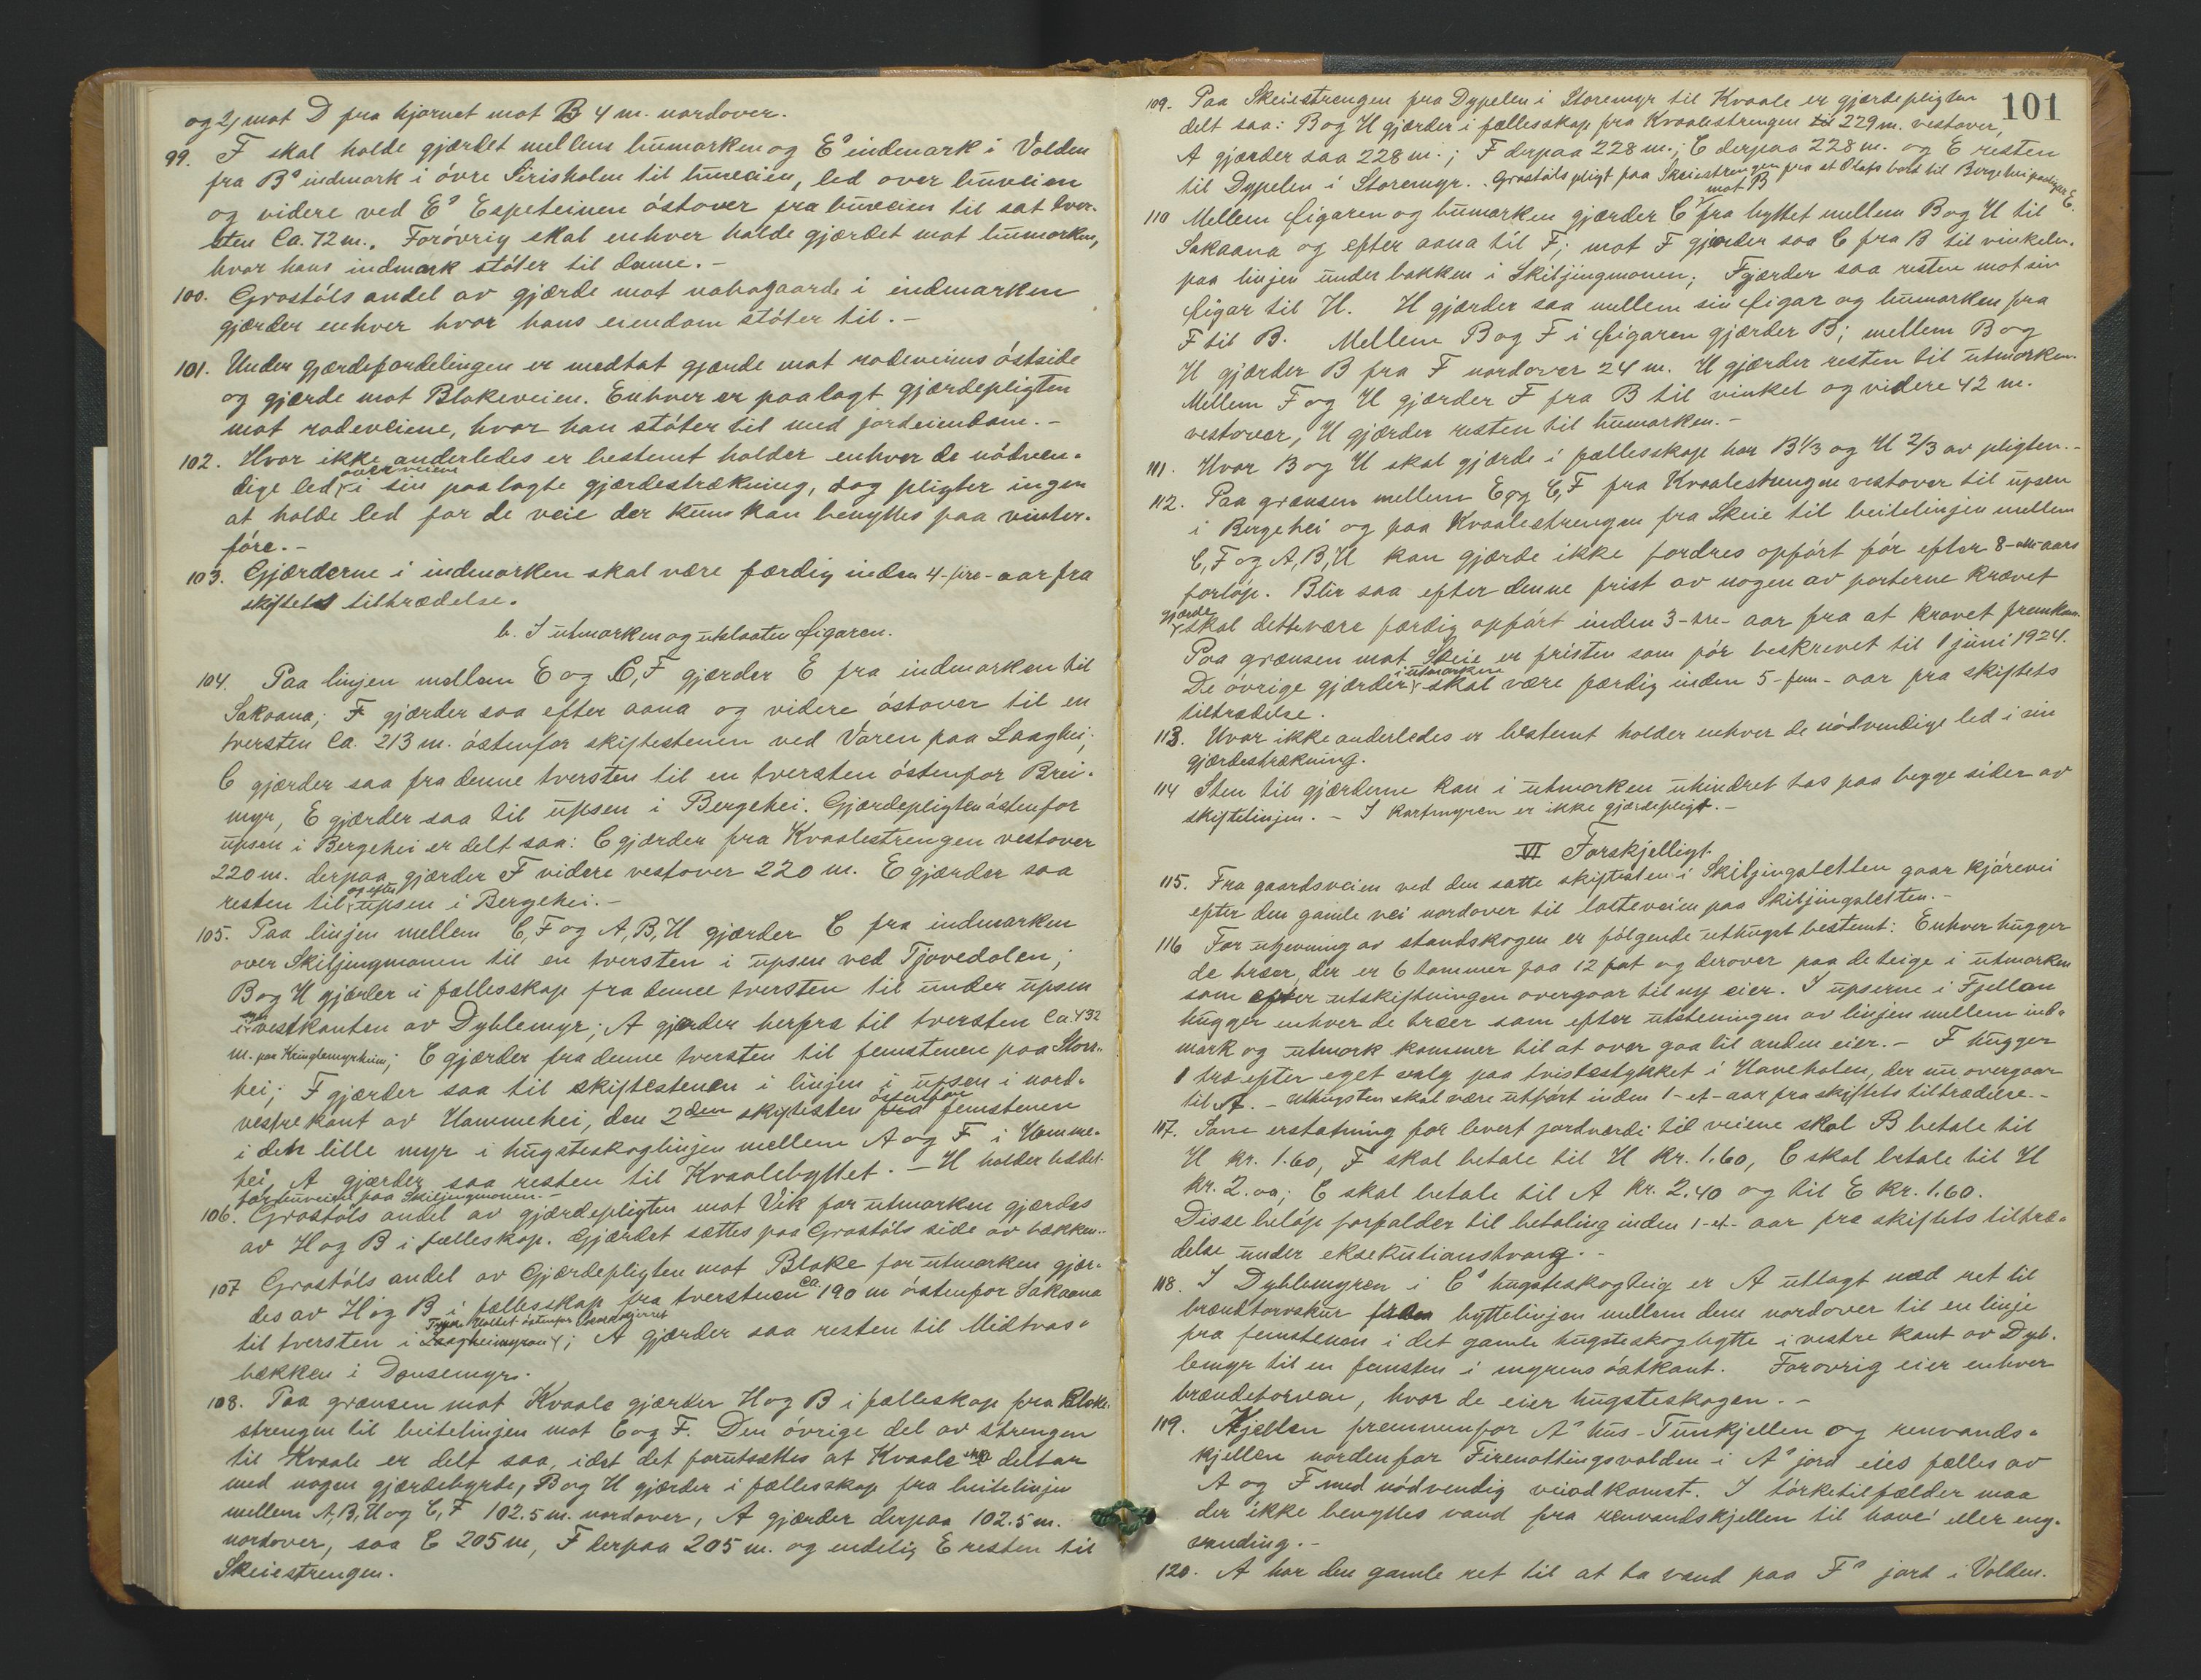 og 2, mot D fra hjørnet mot B 4 m. nordover.
99. F skal holde gjærdet mellem bumarken og E's indmark i Volden
fra B's indmark i øvre Sirisholm til buveien, led over buveien
og videre ved E's Espeteinen østover fra buveien til sat tver-
sten ca. 72 m. Forøvrig skal enhver holde gjærdet mot bumarken,
hvor hans indmark støter til denne. -
100. Grostøls andel av gjærde mot nabogaarde i indmarken
gjærder enhver hvor hans eiendom støter til. -
101. Under gjærdefordelingen er medtat gjærde mot rodeveiens østside
og gjærde mot Blokeveien. Enhver er paalagt gjærdepligten
mot rodeveiene, hvor han støter til med jordeiendom. -
102. Hvor ikke anderledes er bestemt holder enhver de nødven-
over veiene
dige led i sin paalagte gjærdestrækning, dog pligter ingen
at holde led for de veie der kun kan benyttes paa vinter-
føre. -
103. Gjærderne i indmarken skal være færdig inden 4-fire-aar fra
skiftets tiltrædelse.
b. I utmarken og utslaatten Figaren.
104. Paa linjen mellem E og C, F gjærder E fra indmarken til
Sakaana; F gjærder saa efter aana og videre østover til en
tversten ca. 213 m. østenfor skiftestenen ved Varen paa Laaghei;
C gjærder saa fra denne tversten til en tversten østenfor Brei-
myr, E gjærder saa til upsen i Bergehei. Gjærdepligten østenfor
upsen i Bergehei er delt saa: C gjærder fra Kvaalestrengen vestover
220 m. derpaa gjærder F videre vestover 220 m. E gjærder saa
og efter
resten til upsen i Bergehei. -
105. Paa linjen mellem C, F og A, B, H gjærder C fra indmarken
over Skiljingmonen til en tversten i upsen ved Tjovedalen;
B og H gjærder i fællesskap fra denne tversten til under upsen
i vestkanten av Dyblemyr; A gjærder herfra til tversten ca. 432
m. paa Kringlemyrheim; C gjærder fra denne tversten til femstenen paa Stor-
hei; F gjærder saa til skiftestenen i linjen i upsen i nord-
østenfor
vestre kant av Hammehei, den 2den skiftesten fra femstenen
i den lille myr i hugsteskoglinjen mellem A og F i Hamme-
hei, A gjærder saa resten til Kvaalebyttet. - H holder ledet
for buveien paa Skiljingmonen. -
106. Grostøls andel av gjærdepligten mot Vik for utmarken gjærdes
av H og B i fælleskap. Gjærdet sættes paa Grostøls side av bækken. -
107 Grostøls andel av Gjærdepligten mot Bloke for utmarken gjær-
des av H og B i fællesskap fra tverstenen ca. 190 m østenfor Sakaana
til tversten i Laagheimyran; A gjærder saa resten til Midtvas-
bækken i Dansemyr.
108. Paa grænsen mot Kvaale gjærder H og B i fælleskap fra Bloke-
strengen til beitelinjen mot C og F. Den øvrige del av strengen
til Kvaale er delt saa, idet det forutsættes at Kvaale ikke deltar
med nogen gjærdebyrde, B og H gjærder i fællesskap fra beitelinjen
mellem A, B, H og C, F 102.5 m. nordover, A gjærder derpaa 102.5 m.
nordover, saa C 205 m, F derpaa 205 m. og endelig E resten til
Skeiestrengen.
101
109. Paa Skeiestrengen fra Dypelen i Storemyr til Kvaale er gjærdepligten
delt saa: B og H gjærder i fællesskap fra Kvaalestrengen til 229 m. vestover,
A gjærder saa 228 m.; F derpaa 228 m.; C derpaa 228 m. og E resten
til Dypelen i Storemyr. Grostøls pligt paa Skeiestrengen fra et Olafs bord til Bergehei paaligger E.
mot B
110 Mellem Figaren og bumarken gjærder C fra byttet mellem B og H til
Sakaana og efter aana til F; mot F gjærder saa C fra B til vinkelen
paa linjen under bakken i Skiljingmonen; F gjærder saa resten mot sin
figar til H. H gjærder saa mellem sin figar og bumarken fra
F til B. Mellem B og F i Figaren gjærder B; mellem B og
H gjærder B fra F nordover 24 m. H gjærder resten til utmarken.
Mellem F og H gjærder F fra B til vinkel og videre 42 m.
vestover, H gjærder resten til bumarken. -
111. Hvor B og H skal gjærde i fællesskap har B 1/3 og H 2/3 av pligten. -
112. Paa grænsen mellem E og C, F fra Kvaalestrengen vestover til upsen
i Bergehei og paa Kvaalestrengen fra Skeie til beitelinjen mellem
C, F og A, B, H kan gjærde ikke fordres opført før efter 8-otte-aars
forløp. Blir saa efter denne frist av nogen av parterne krævet
gjærde
skal dette være færdig opført inden 3-tre-aar fra at kravet fremkom.
Paa grænsen mot Skeie er fristen som før beskrevet til 1 juni 1924.
i utmarken
De øvrige gjærder skal være færdig inden 5-fem-aar fra skiftets
tiltrædelse.
113. Hvor ikke anderledes er bestemt holder enhver de nødvendige led i sin
gjærdestrækning.
114 Sten til gjærderne kan i utmarken uhindret tas paa begge sider av
skiftelinjen. - I Kartmyren er ikke gjærdepligt. -
VI Forskjelligt
115. Fra gaardsveien ved den satte skiftesten i Skiljingsletten gaar kjørevei
efter den gamle vei nordover til latteveien paa Skiljingsletten. -
116 For utjevning av standskogen er følgende uthugst bestemt: Enhver hugger
de trær, der er 6 tommer paa 12 fot og derover paa de teige i utmarken
som efter utskiftningen overgaar til ny eier. I upserne i Fjellan
hugger enhver de trær som efter utsteningen av linjen mellem ind-
mark og utmark kommer til at over gaa til anden eier. - F hugger
1 træ efter eget valg paa tvistestykket i Haveholen, der nu overgaar
til A. - Uthugsten skal være utført inden 1-et-aar fra skiftets tiltrædelse. -
117. Som erstatning for levert jordværdi til veiene skal B betale til
H kr. 1.60, F skal betale til H kr. 1.60, C skal betale til H
kr. 2.00; C skal betale til A kr. 2.40 og til E kr. 1.60.
Disse beløp forfalder til betaling inden 1-et-aar fra skiftets tiltræ-
delse under eksekutionstvang. -
118. I Dyblemyren i C's hugsteskogteig er A utlagt med ret til
brændtorvskur fra byttelinjen mellem dem nordover til en linje
fra femstenen i det gamle hugsteskogbytte i vestre kant av Dyb-
lemyr til en femsten i myrens østkant. Forøvrig eier enhver
brændetorven, hvor de eier hugsteskogen. -
119. Kjellen fremmenfor A's hus - Tunkjellen og renvands-
kjellen nordenfor Firenottingsvolden i A's jord eies fælles av
A og F med nødvendig veiadkomst. I tørketilfælder maa
der ikke benyttes vand fra renvandskjellen til have eller eng-
vanding. -
120. A har den gamle ret til at ta vand paa F's jord i Volden.